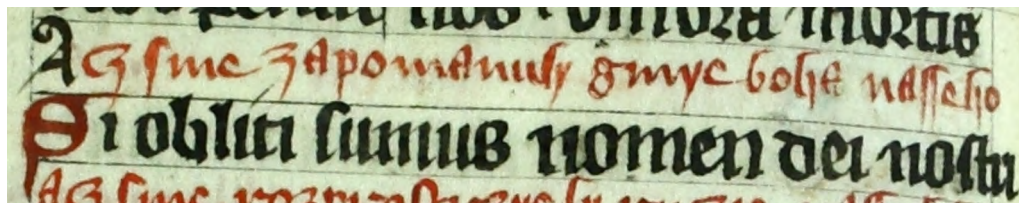 nos vmbra mortis
Acz ſme zapomanuly gmye boha naſſeho
Si obliti ſumus nomen dei noſtri
Acz ſme